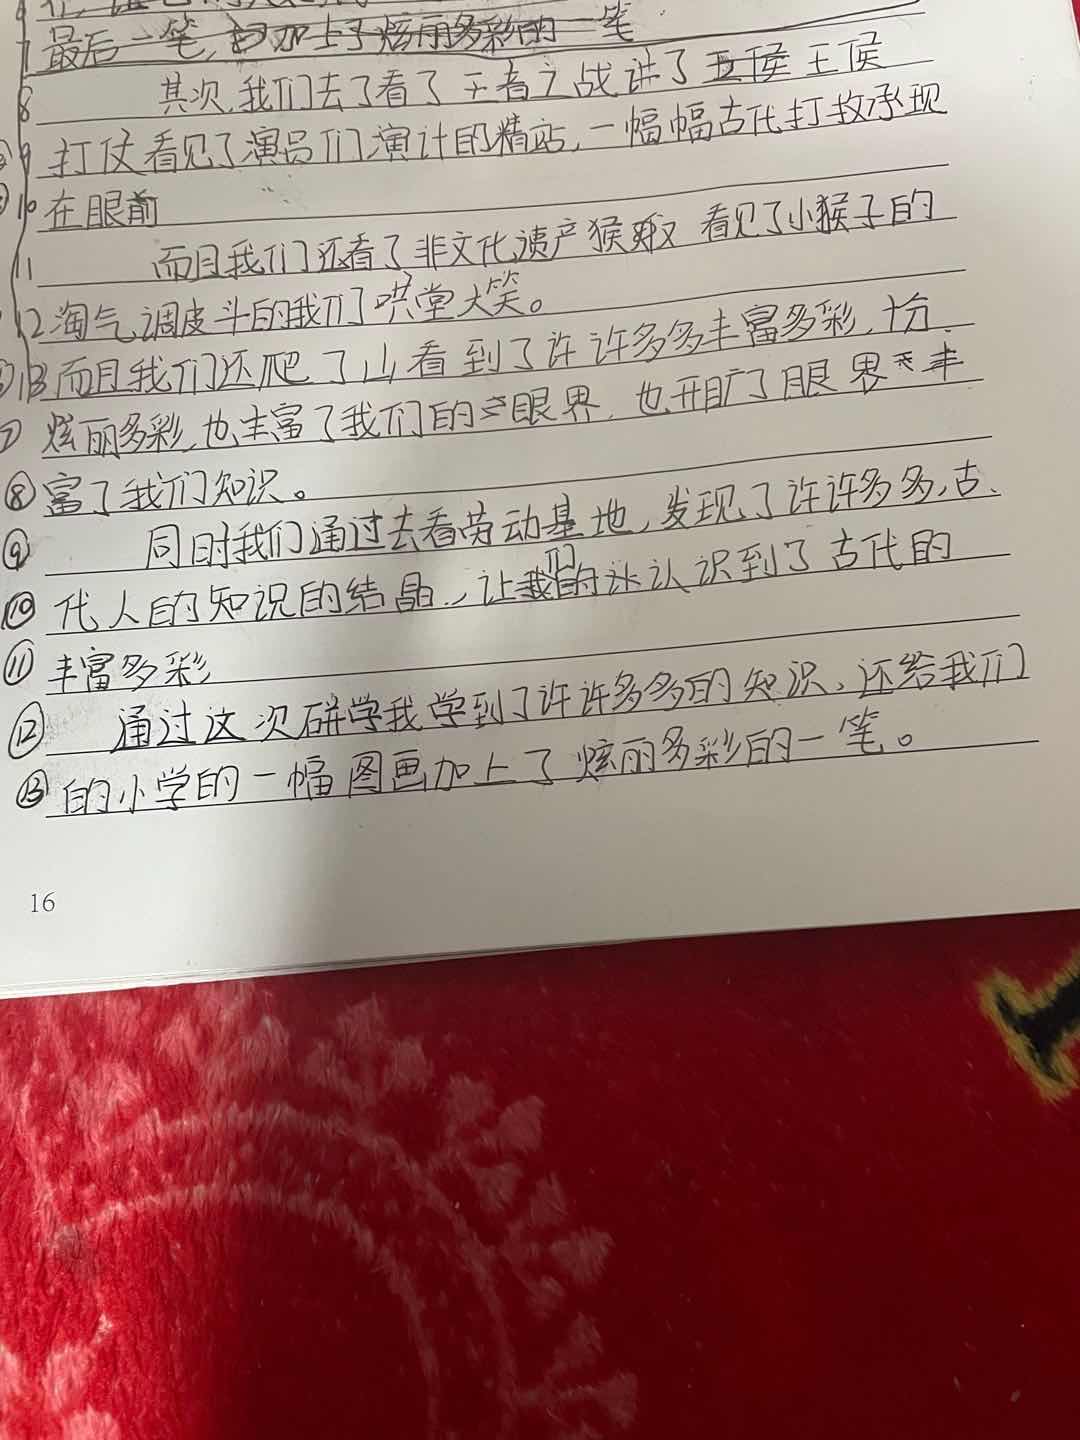 7 最后一笔,又加上了炫丽多彩的一笔
8 其次,我们去了看了王者之战讲了王侯
9 打仗看见了演员们演计的精站,一幅幅古代打放承现
10 在眼前
11 而且我们还看了非文化遗产猴 看见了小猴子的
12 淘气调皮斗的我们哄堂大笑。
13 而且我们还爬了山看到了许许多多丰富多彩,十分
⑦ 炫丽多彩,也丰富了我们的眼界,也开广了眼界丰
⑧ 富了我们知识。
⑨ 同时我们通过去看劳动基地,发现了许许多多,古、
⑩ 代人的知识的结晶.,让我们认识到了古代的
⑪ 丰富多彩
⑫ 通过这次研学我学到了许许多多的知识、还给我们
⑬ 的小学的一幅图画加上了炫丽多彩的一笔。
16